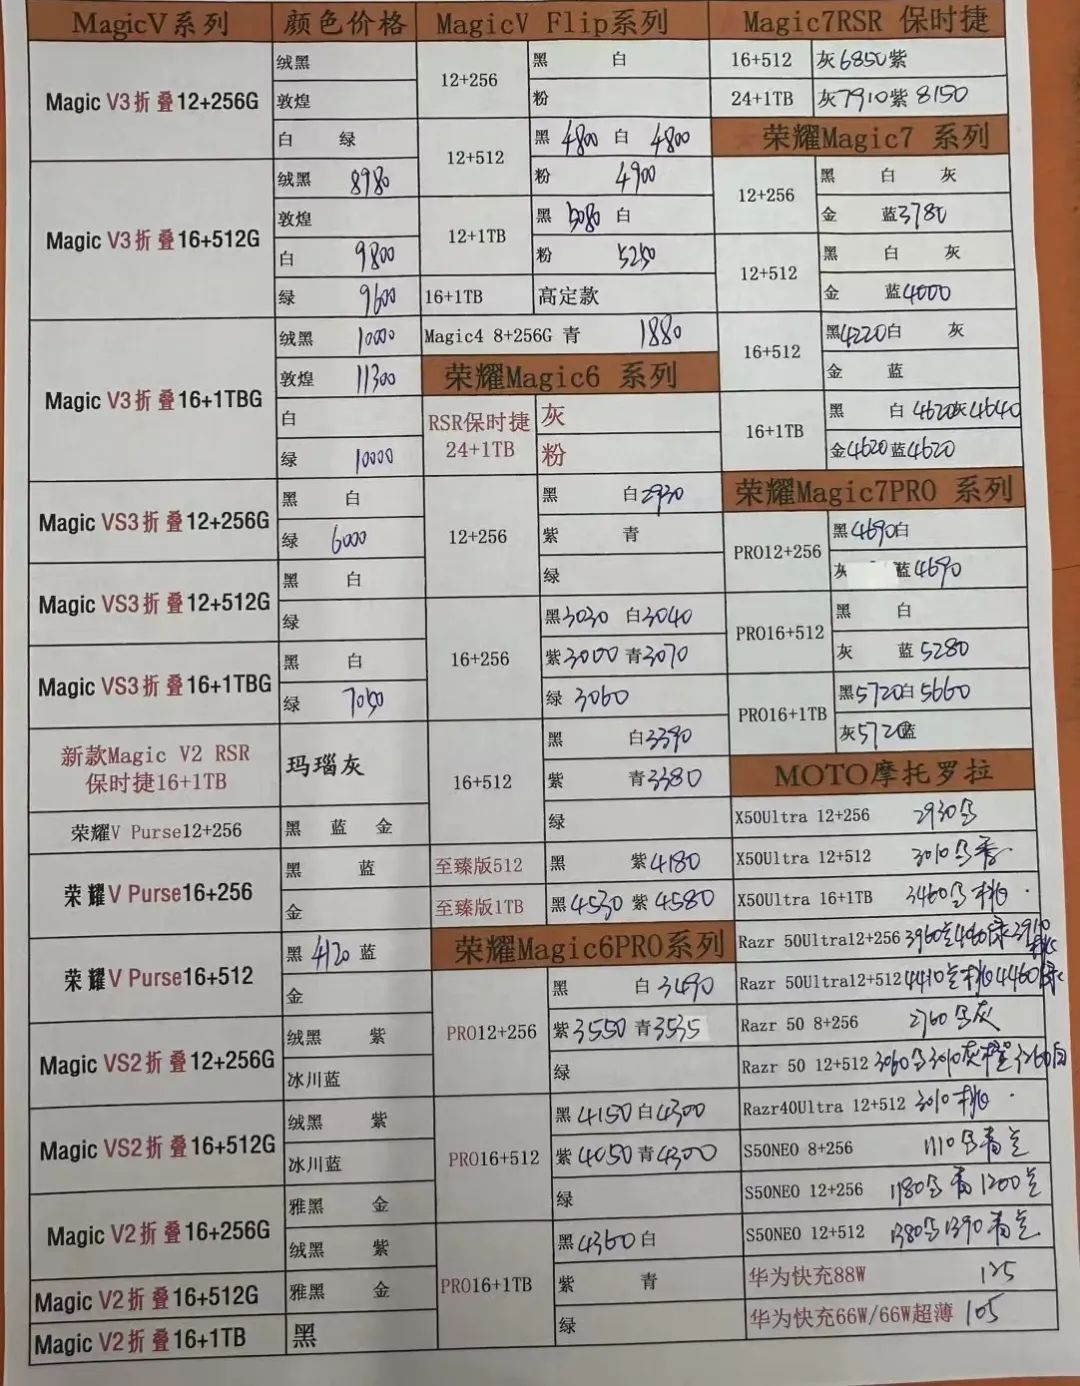 MagicV系列 颜色价格
Magic V3折叠12+256G
绒黑
敦煌
白 绿
Magic V3折叠16+512G
绒黑 8980
敦煌
白 9800
绿 9600
Magic V3折叠16+1TBG
绒黑 10000
敦煌 11300
白
绿 10000
Magic VS3折叠12+256G
黑 白
绿 6000
Magic VS3折叠12+512G
黑 白
绿
Magic VS3折叠16+1TBG
黑 白
绿 7050
新款Magic V2 RSR
保时捷16+1TB
玛瑙灰
荣耀V Purse12+256 黑 蓝 金
荣耀V Purse16+256
黑 蓝
金
荣耀V Purse16+512
黑 4120 蓝
金
Magic VS2折叠12+256G
绒黑 紫
冰川蓝
Magic VS2折叠16+512G
绒黑 紫
冰川蓝
Magic V2折叠16+256G
雅黑 金
绒黑 紫
Magic V2折叠16+512G 雅黑 金
Magic V2折叠16+1TB 黑
MagicV Flip系列
12+256
黑 白
粉
12+512
黑 4800 白 4800
粉 4900
12+1TB
黑 5080 白
粉 5250
16+1TB 高定款
Magic4 8+256G 青 1880
荣耀Magic6 系列
RSR保时捷
24+1TB
灰
粉
12+256
黑 白2930
紫 青
绿
16+256
黑3030 白3040
紫3000 青3070
绿 3060
16+512
黑 白3390
紫 青3380
绿
至臻版512 黑 紫4180
至臻版1TB 黑4530 紫4580
荣耀Magic6PRO系列
PRO12+256
黑 白 3490
紫3550 青3535
绿
PRO16+512
黑4150 白4300
紫4050 青4300
绿
PRO16+1TB
黑4360 白
紫 青
绿
Magic7RSR 保时捷
16+512 灰6850紫
24+1TB 灰7910紫 8150
荣耀Magic7 系列
12+256
黑 白 灰
金 蓝3780
12+512
黑 白 灰
金 蓝4000
16+512
黑4220白 灰
金 蓝
16+1TB
黑 白4620灰4640
金4620蓝4620
荣耀Magic7PRO 系列
PRO12+256
黑4690白
灰 蓝4690
PRO16+512
黑 白
灰 蓝 5280
PRO16+1TB
黑5720白5660
灰5720蓝
MOTO摩托罗拉
X50Ultra 12+256 2930
X50Ultra 12+512 3010
X50Ultra 16+1TB 3460 桃
Razr 50Ultra12+256 3960
Razr 50Ultra12+512 4410 桃 4460
Razr 50 8+256 2760 灰
Razr 50 12+512 3060 3010灰
Razr40Ultra 12+512 3010 桃
S50NEO 8+256 1110 青
S50NEO 12+256 1180 青 1200
S50NEO 12+512 1380 1390 青
华为快充88W 125
华为快充66W/66W超薄 105